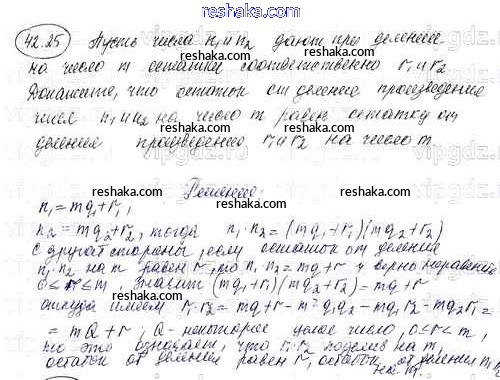 reshaka.com
42.25 Пусть числа n₁ и n₂ дают при делении
на число m остатки соответственно r₁ и r₂
reshaka.com
Докажите, что остаток от деления произведения
чисел n₁ и n₂ на число m равен остатку от
reshaka.com
деления произведения r₁ и r₂ на число m.
reshaka.com
Решение:
n₁ = mq₁ + r₁,
n₂ = mq₂ + r₂, тогда n₁ n₂ = (mq₁ + r₁)(mq₂ + r₂)
С другой стороны, если остаток от деления
n₁ n₂ на m равен r, то n₁ n₂ = mq + r и верно неравенство
0 ≤ r ≤ m, значит (mq₁ + r₁)(mq₂ + r₂) = mq + r
откуда имеем r₁ r₂ = mq + r - m² q₁q₂ - mq₁ r₂ - mq₂ r₁ =
= mQ + r, Q - некоторое целое число, 0 ≤ r ≤ m,
но это означает, что r₁ r₂ поделив на m,
остаток от деления равен r, остаток от деления n₁
на m.
reshaka.com